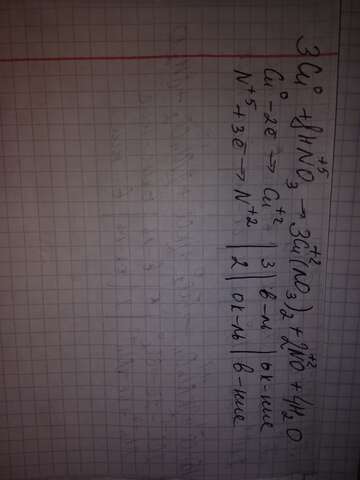 3Cu⁰ + 8HN⁺⁵O₃ → 3Cu⁺²(NO₃)₂ + 2N⁺²O + 4H₂O
Cu⁰ - 2ē → Cu⁺² | 3 | в-ль | ок-ние
N⁺⁵ + 3ē → N⁺² | 2 | ок-ль | в-ние